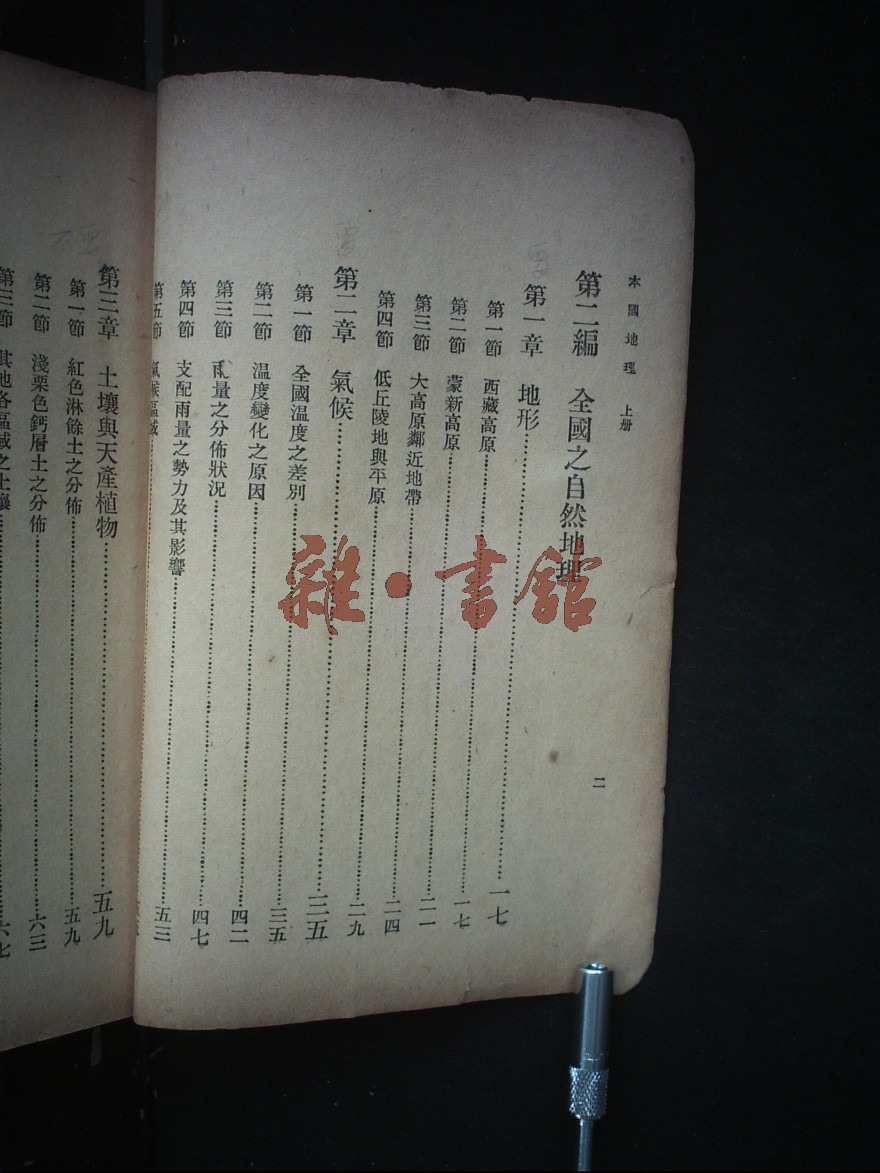 本國地理 上册
二
第二編 全國之自然地理
第一章 地形……一七
第一節 西藏高原……一七
第二節 蒙新高原……二一
第三節 大高原鄰近地帶……二四
第四節 低丘陵地與平原……二九
第二章 氣候……三五
第一節 全國温度之差別……三五
第二節 温度變化之原因……四二
第三節 雨量之分佈狀况……四七
第四節 支配雨量之勢力及其影響……五三
第五節 氣候區域……
第三章 土壤與天產植物……五九
第一節 紅色淋餘土之分佈……五九
第二節 淺栗色鈣層土之分佈……六三
第三節 其他各區域之土壤……六七
雜·書館